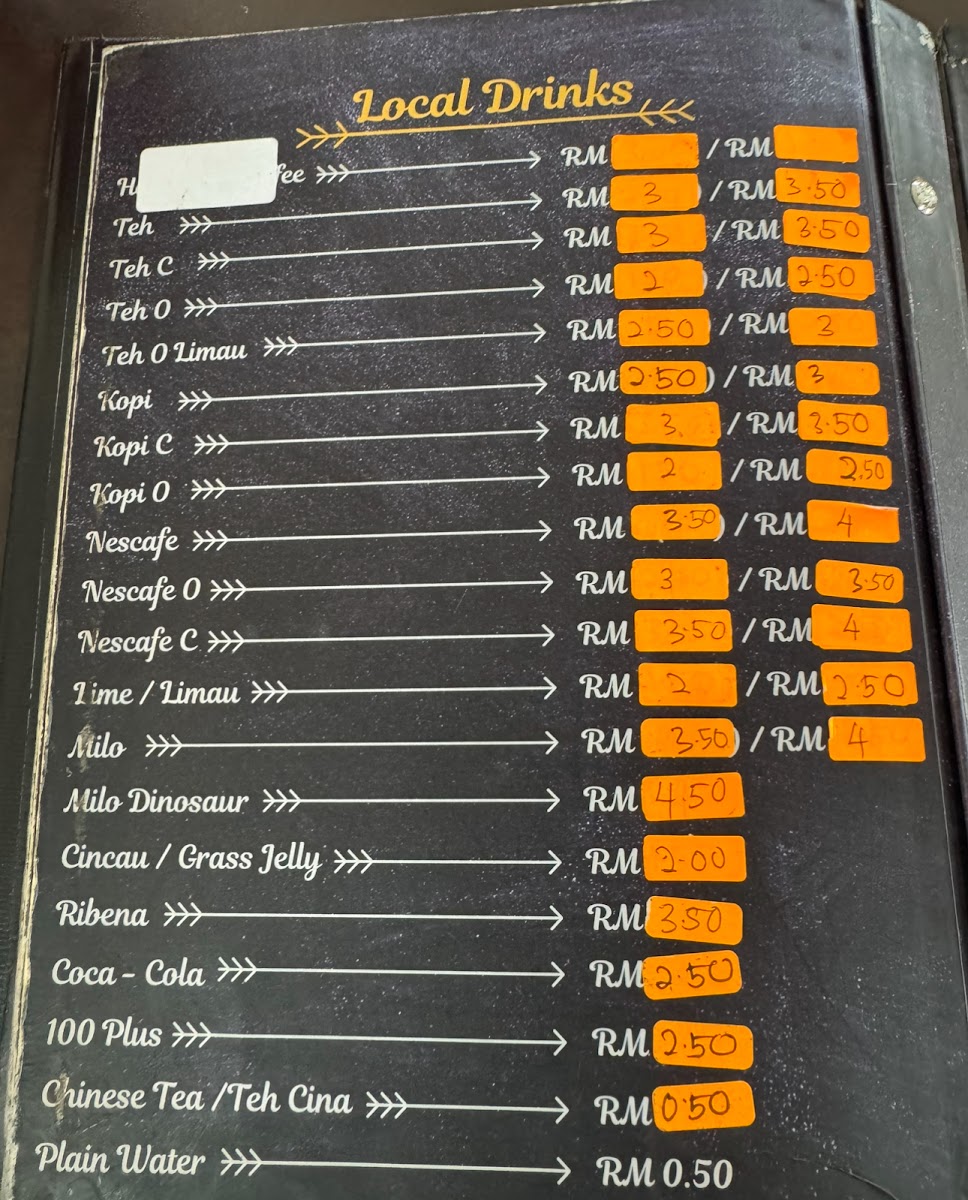 Local Drinks
RM / RM
Teh RM 3 / RM 3.50
Teh C RM 3 / RM 3.50
Teh O RM 2 / RM 2.50
Teh O Limau RM 2.50 / RM 3
Kopi RM 2.50 ) / RM 3
Kopi C RM 3 / RM 3.50
Kopi O RM 2 / RM 2.50
Nescafe RM 3.50 / RM 4
Nescafe O RM 3 / RM 3.50
Nescafe C RM 3.50 / RM 4
Lime / Limau RM 2 / RM 2.50
Milo RM 3.50 ) / RM 4
Milo Dinosaur RM 4.50
Cincau / Grass Jelly RM 2.00
Ribena RM 3.50
Coca - Cola RM 2.50
100 Plus RM 2.50
Chinese Tea /Teh Cina RM 0.50
Plain Water RM 0.50